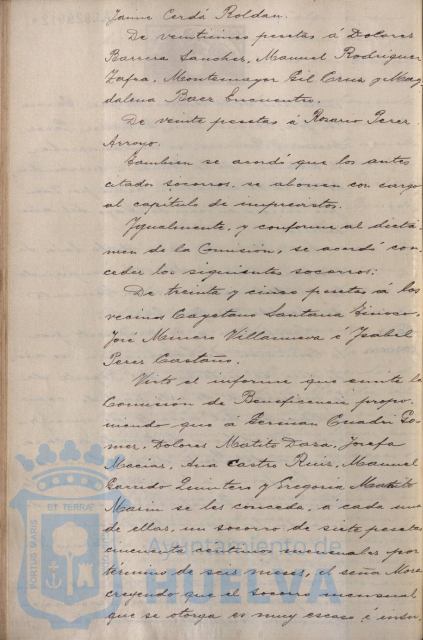 Jaime Cerdá Roldan.
De veinticinco pesetas á Dolores
Barrera Sanchez, Manuel Rodriguez
Zafra, Montemayor Gil Cruz y Mag
dalena Baez Encuentro.
De veinte pesetas á Rosario Perez
Arroyo.
Tambien se acordó que los antes
citados socorros, se abonen con cargo
al capitulo de imprevistos.
Igualmente, y conforme al dictá-
men de la Comisión, se acordó con-
ceder los siguientes socorros:
De treinta y cinco pesetas á los
vecinos Cayetano Santana
José Minero Villanueva é Isabel
Perez Castaño.
Visto el informe que emite la
Comisión de Beneficencia propo-
niendo que á German Cuadri Go-
mez, Dolores Matito Daza, Josefa
Macias, Ana Castro Ruiz, Manuel
Garrido Quintero y Gregoria Matito
Marin se les conceda, á cada uno
de ellos, un socorro de siete pesetas
cincuenta centimos mensuales por
término de seis meses, el señor Mora
creyendo que el socorro mensual
que se otorga es muy escaso é insu
PORTUS MARIS ET TERRAE
Ayuntamiento de
HUELVA